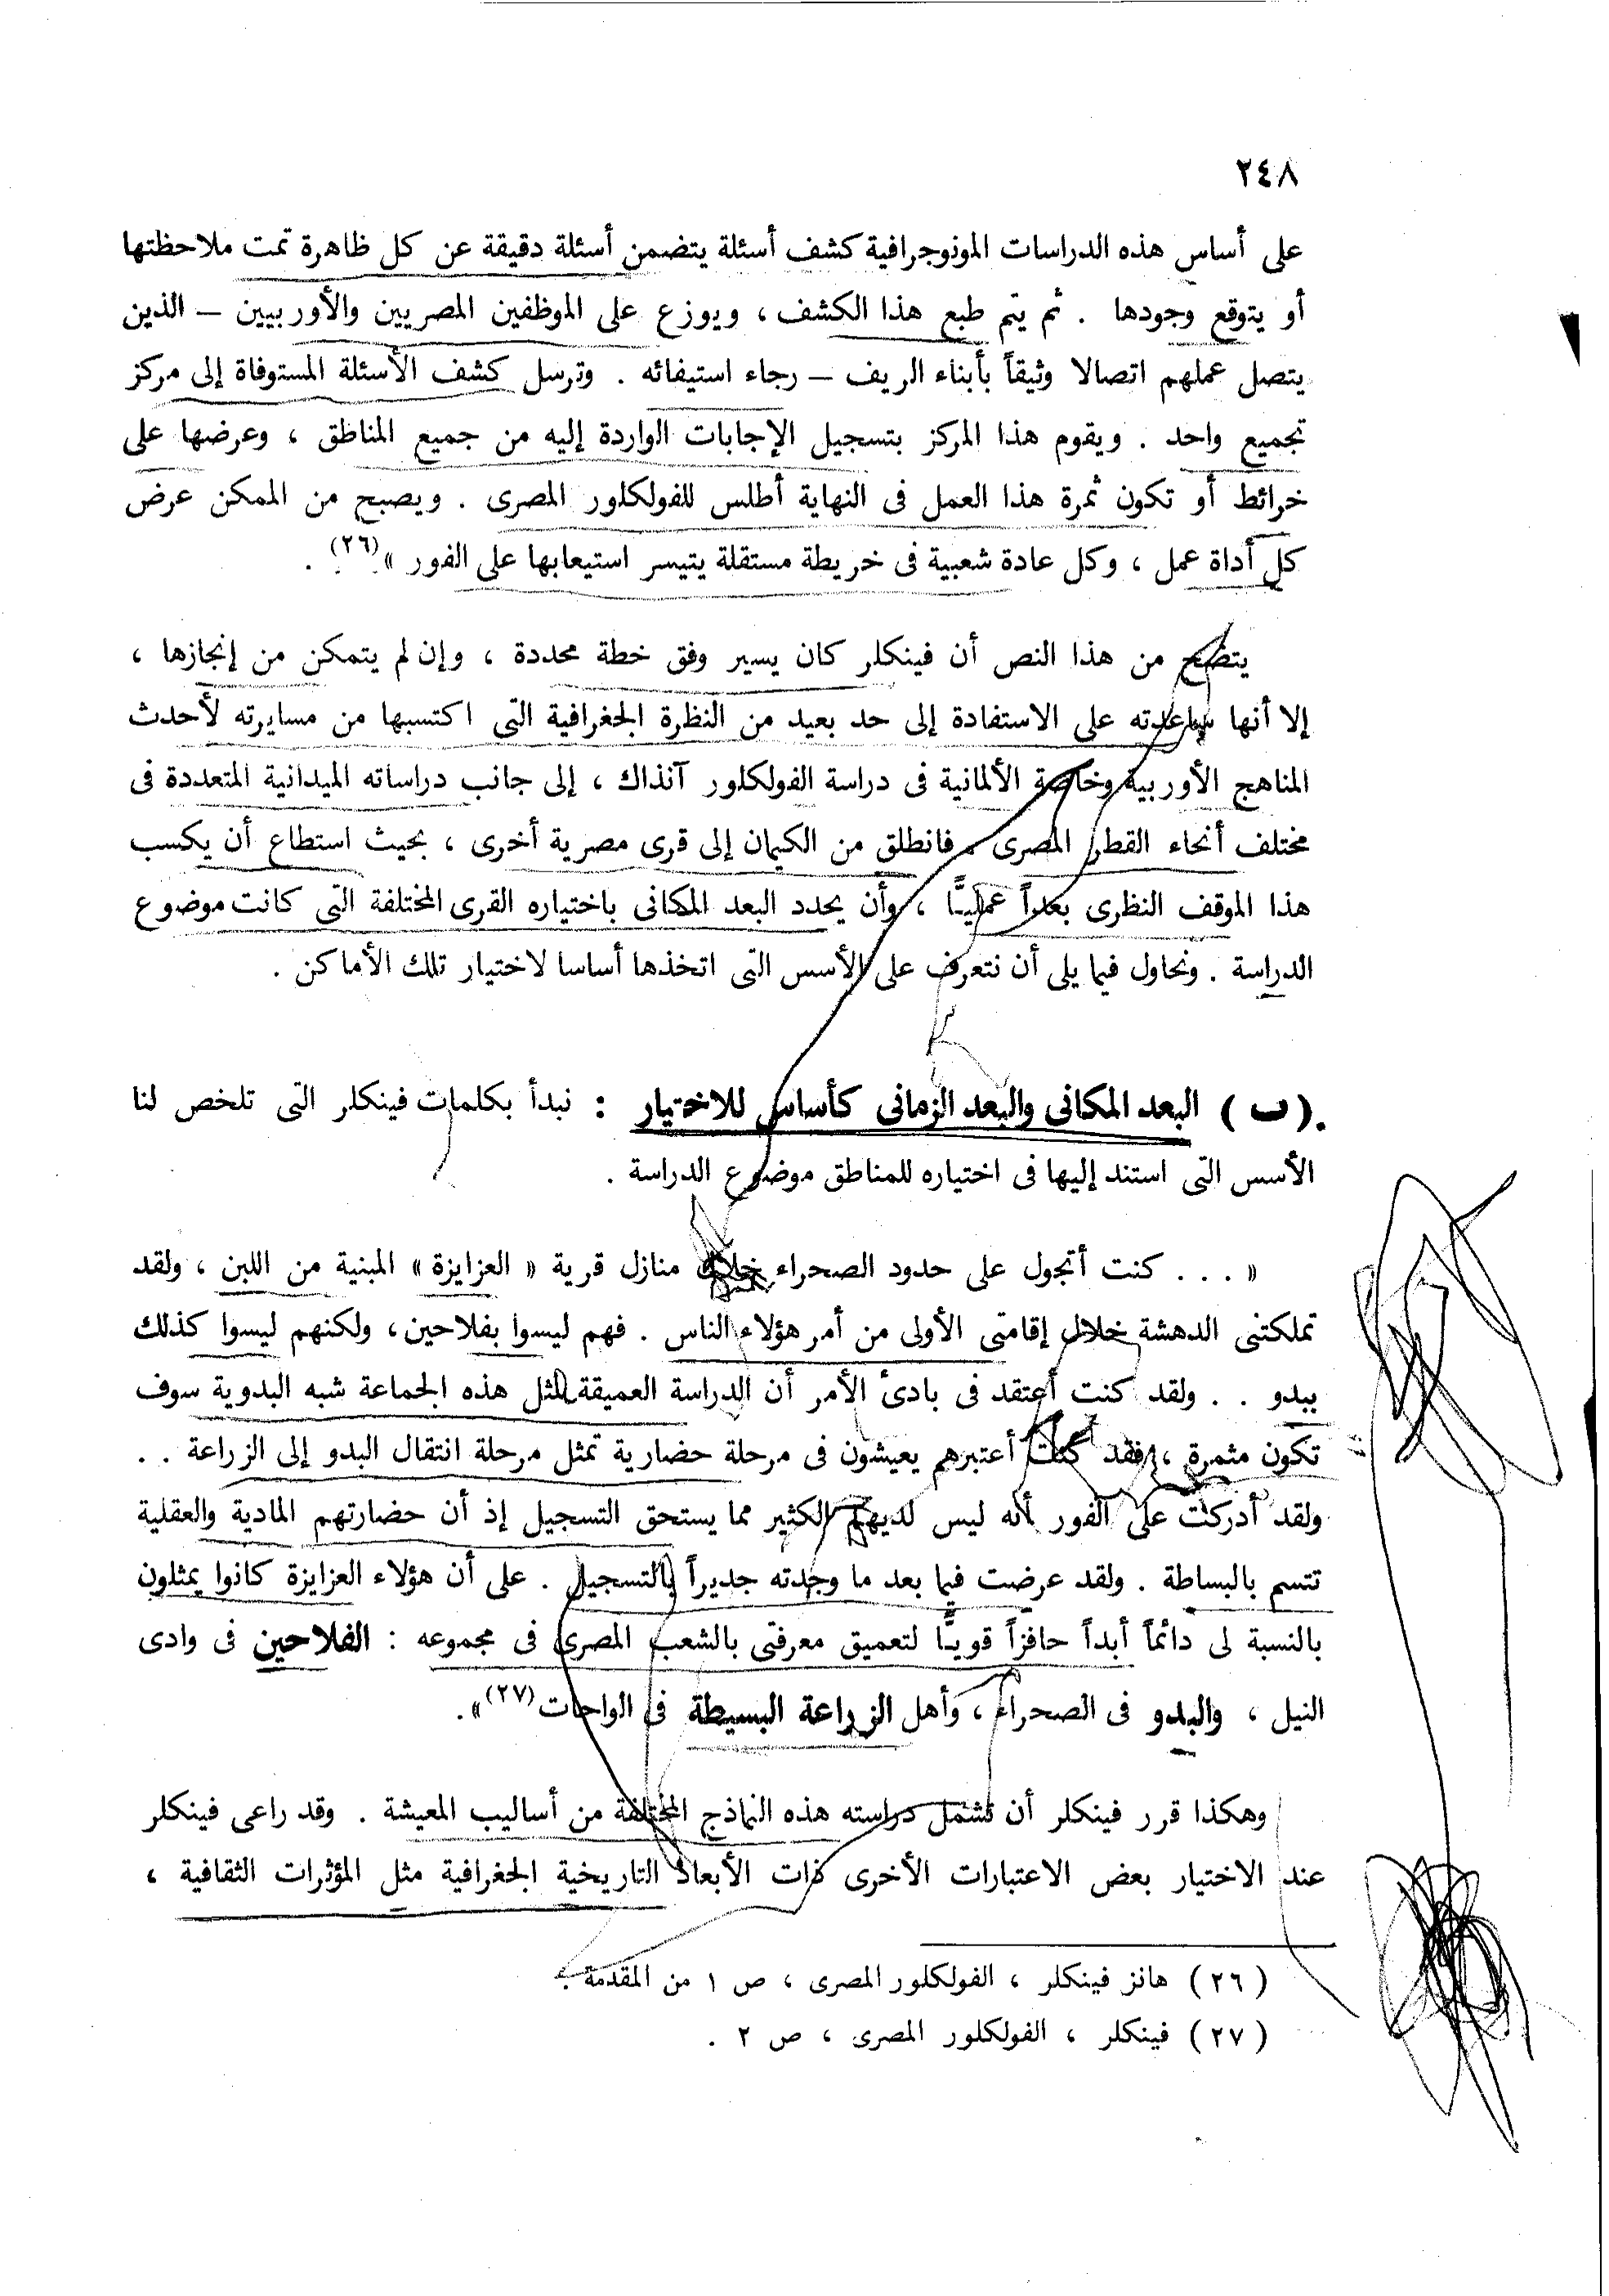 ٢٤٨
على أساس هذه الدراسات المونوجرافية كشف أسئلة يتضمن أسئلة دقيقة عن كل ظاهرة تمت ملاحظتها
أو يتوقع وجودها . ثم يتم طبع هذا الكشف ، ويوزع على الموظفين المصريين والأوربيين – الذين
يتصل عملهم اتصالا وثيقاً بأبناء الريف – رجاء استيفائه . وترسل كشف الأسئلة المستوفاة إلى مركز
تجميع واحد . ويقوم هذا المركز بتسجيل الإجابات الواردة إليه من جميع المناطق ، وعرضها على
خرائط أو تكون ثمرة هذا العمل فى النهاية أطلس للفولكلور المصرى . ويصبح من الممكن عرض
كل أداة عمل ، وكل عادة شعبية فى خريطة مستقلة يتيسر استيعابها على الفور »(٢٦) .
يتضح من هذا النص أن فينكلر كان يسير وفق خطة محددة ، وإن لم يتمكن من إنجازها ،
إلا أنها ساعدته على الاستفادة إلى حد بعيد من النظرة الجغرافية التى اكتسبها من مسايرته لأحدث
المناهج الأوربية وخاصة الألمانية فى دراسة الفولكلور آنذاك ، إلى جانب دراساته الميدانية المتعددة فى
مختلف أنحاء القطر المصرى . فانطلق من الكيمان إلى قرى مصرية أخرى ، بحيث استطاع أن يكسب
هذا الموقف النظرى بعداً عمليًّا ، وأن يحدد البعد المكانى باختياره القرى المختلفة التى كانت موضوع
الدراسة . ونحاول فيما يلى أن نتعرف على الأسس التى اتخذها أساسا لاختيار تلك الأماكن .
(ب) البعد المكانى والبعد الزمانى كأساس للاختيار : نبدأ بكلمات فينكلر التى تلخص لنا
الأسس التى استند إليها فى اختياره للمناطق موضوع الدراسة .
« . . . كنت أتجول على حدود الصحراء خلال منازل قرية « العزايزة » المبنية من اللبن ، ولقد
تملكتنى الدهشة خلال إقامتى الأولى من أمر هؤلاء الناس . فهم ليسوا بفلاحين ، ولكنهم ليسوا كذلك
ببدو . . ولقد كنت أعتقد فى بادئ الأمر أن الدراسة العميقة لمثل هذه الجماعة شبه البدوية سوف
تكون مثمرة ، فقد كنت أعتبرهم يعيشون فى مرحلة حضارية تمثل مرحلة انتقال البدو إلى الزراعة . .
ولقد أدركت على الفور أنه ليس لديهم الكثير مما يستحق التسجيل إذ أن حضارتهم المادية والعقلية
تتسم بالبساطة . ولقد عرضت فيما بعد ما وجدته جديراً بالتسجيل . على أن هؤلاء العزايزة كانوا يمثلون
بالنسبة لى دائماً أبداً حافزاً قويًّا لتعميق معرفتى بالشعب المصرى فى مجموعه : الفلاحين فى وادى
النيل ، والبدو فى الصحراء ، وأهل الزراعة البسيطة فى الواحات (٢٧)» .
وهكذا قرر فينكلر أن تشمل دراسته هذه النماذج المختلفة من أساليب المعيشة . وقد راعى فينكلر
عند الاختيار بعض الاعتبارات الأخرى ذات الأبعاد التاريخية الجغرافية مثل المؤثرات الثقافية ،
( ٢٦ ) هانز فينكلر ، الفولكلور المصرى ، ص ١ من المقدمة .
( ٢٧ ) فينكلر ، الفولكلور المصرى ، ص ٢ .